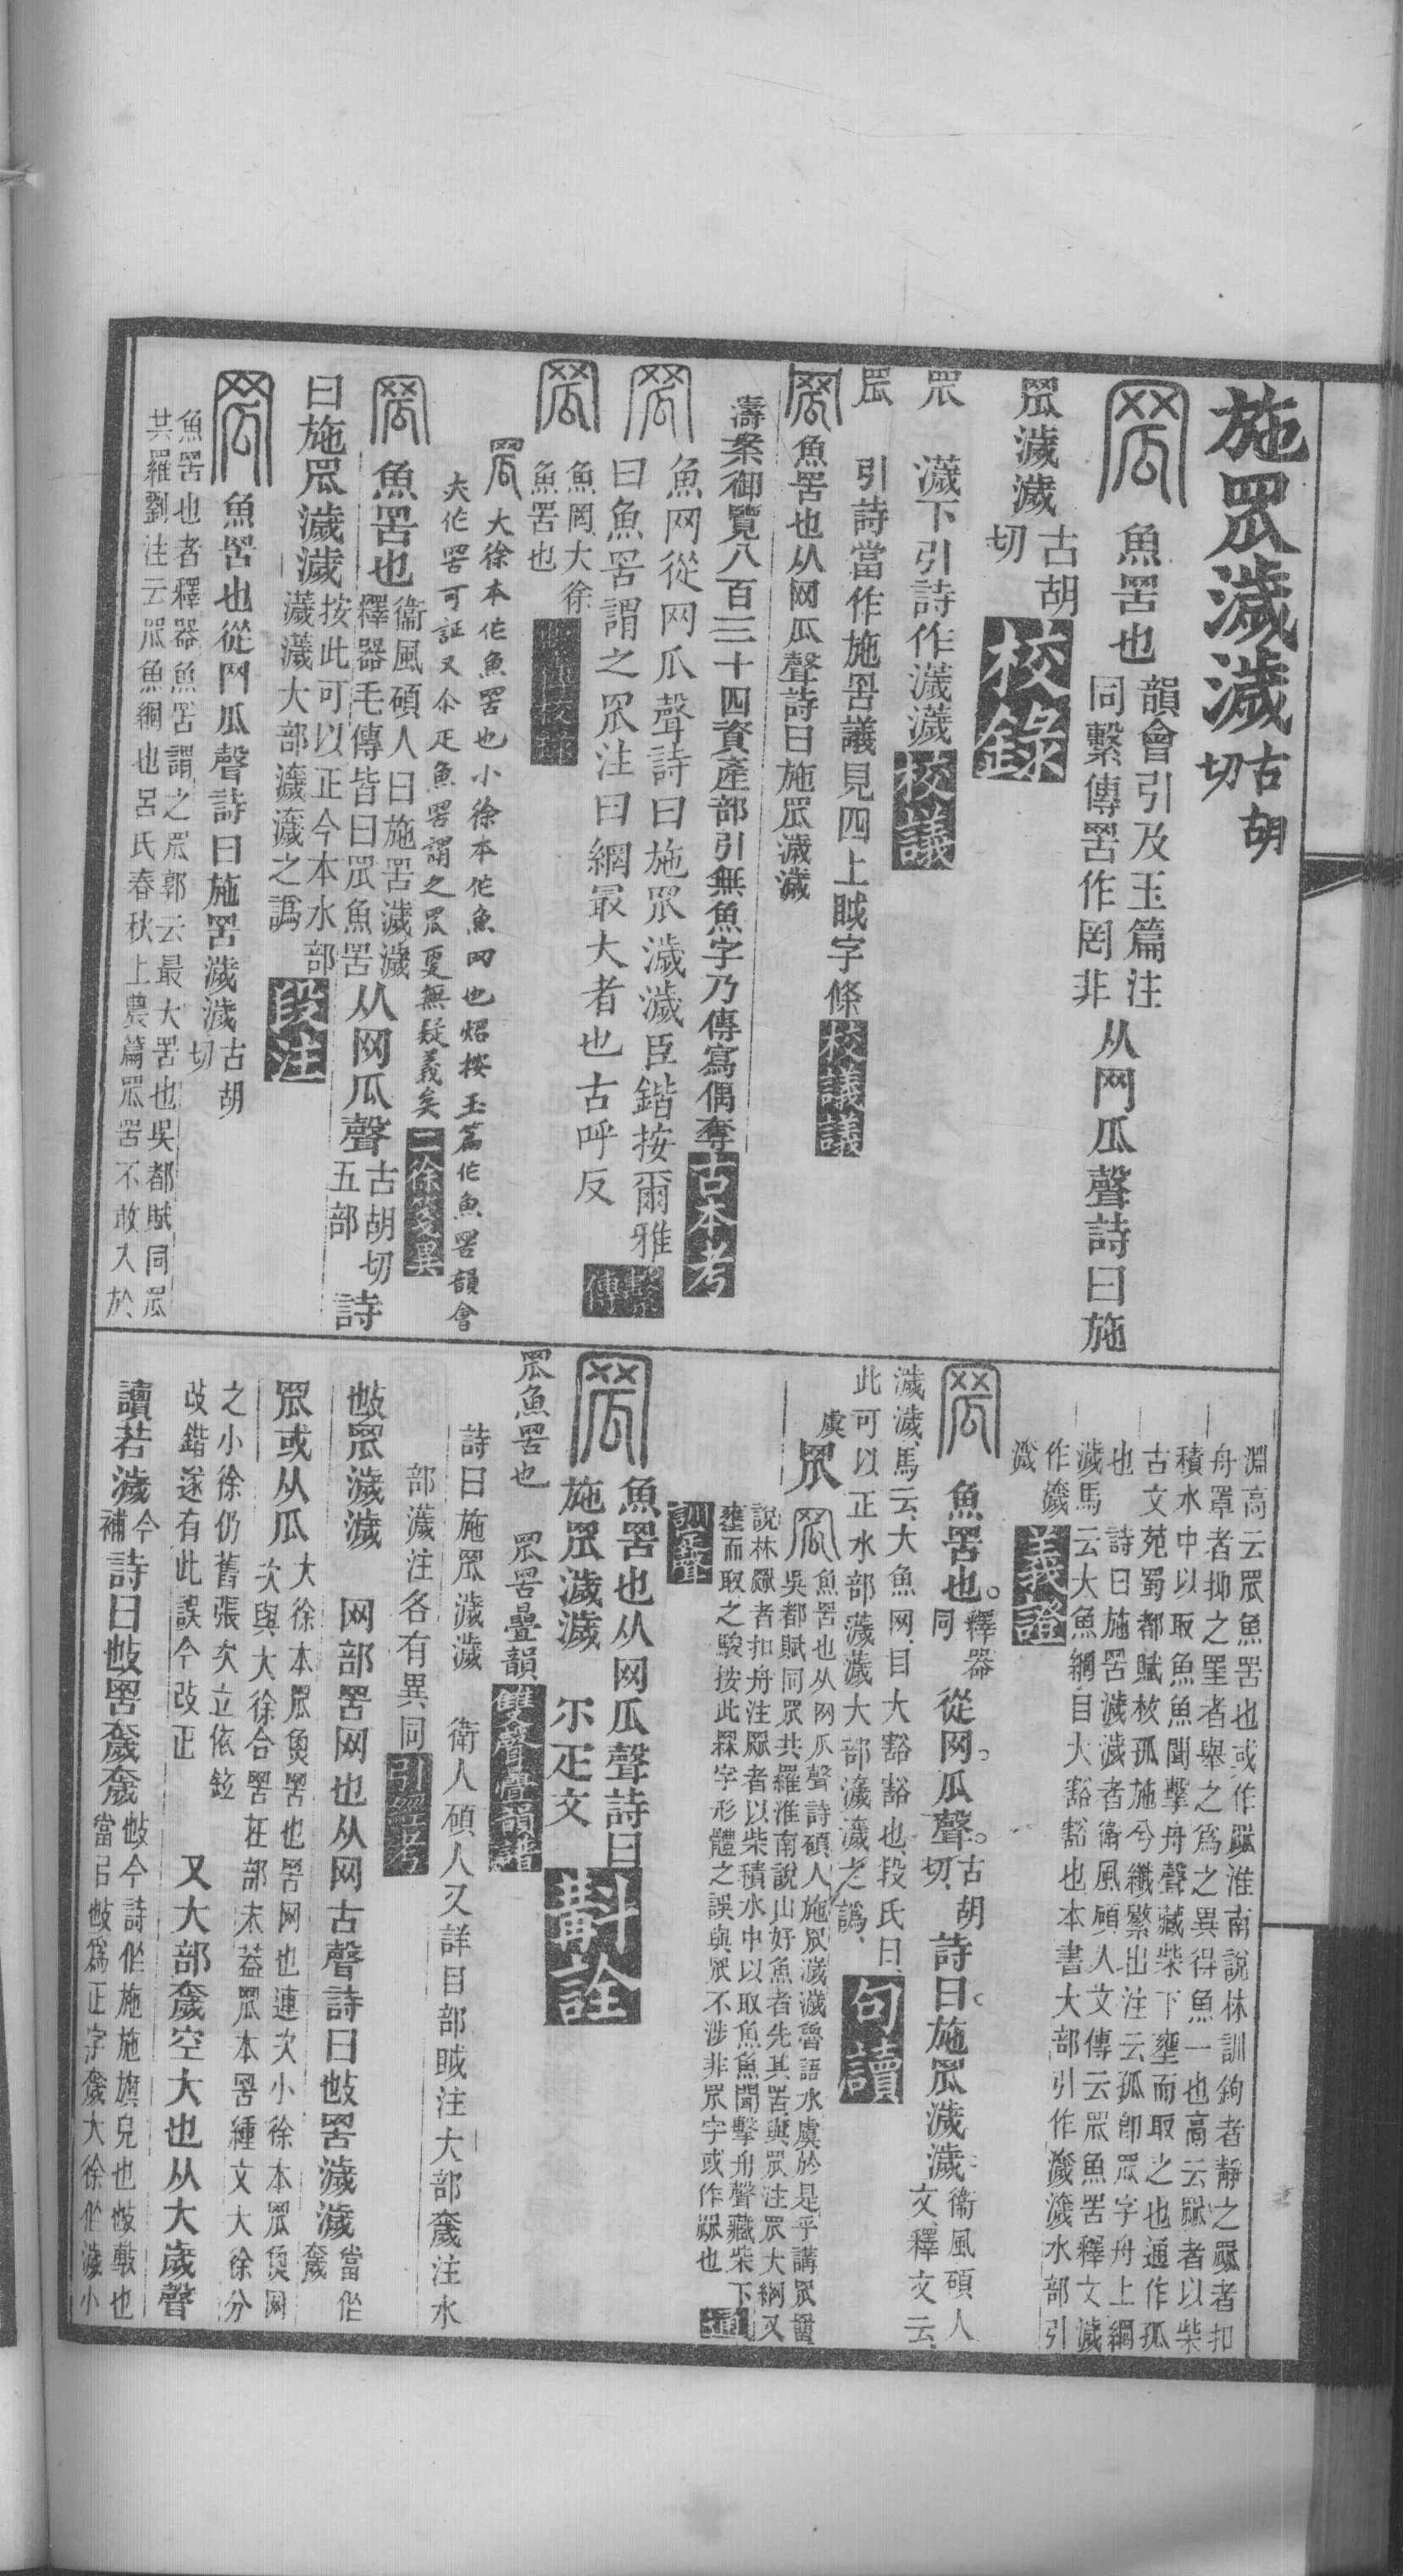 施罛濊濊古胡切
魚罟也韻會引及玉篇注同繫傳罟作罔非从网瓜聲詩曰施
罛濊濊古胡切校錄
罛濊下引詩作濊濊校議
罛引詩當作施罟議見四上眓字條校議議
魚罟也从网瓜聲詩曰施罛濊濊
濤案御覽八百三十四資產部引無魚字乃傳寫偶奪古本考
魚网從网瓜聲詩曰施罛濊濊臣鍇按爾雅
曰魚罟謂之罛注曰網最大者也古呼反繫傳
魚罔大徐魚罟也
大徐本作魚罟也小徐本作魚网也炤按玉篇作魚罟韻會
夫作罟可証又尒疋魚罟謂之罛更無疑義矣二徐箋異
魚罟也衞風碩人曰施罟濊濊釋器毛傳皆曰罛魚罟从网瓜聲古胡切五部詩
曰施罛濊濊按此可以正今本水部濊濊大部奯奯之譌段注
魚罟也從网瓜聲詩曰施罟濊濊古胡切
魚罟也者釋器魚罟謂之罛郭云最大罟也吳都賦同罛
共羅劉注云罛魚網也呂氏春秋上農篇罛罟不敢入於
淵高云罛魚罟也或作𦊔淮南說林訓鉤者靜之𦊔者扣
舟罩者抑之罣者舉之爲之異得魚一也高云𦊔者以柴
積水中以取魚魚聞擊舟聲藏柴下壅而取之也通作孤
古文苑蜀都賦枚孤施兮纖繁出注云孤卽罛字舟上網
也詩曰施罟濊濊者衞風碩人文傳云罛魚罟釋文濊
濊馬云大魚網目大豁豁也本書大部引作奯奯水部引
作奯奯義證
魚罟也釋器同從网瓜聲古胡切詩曰施罛濊濊衞風碩人文釋文云
濊濊馬云大魚网目大豁豁也段氏曰
此可以正水部濊濊大部奯奯之譌句讀
魚罟也从网瓜聲詩碩人施罛濊濊魯語水虞於是乎講罛罶
吳都賦同罛共羅淮南說山好魚者先具罟與罛注罛大網又
說林𦊔者扣舟注𦊔者以柴積水中以取魚魚聞擊舟聲藏柴下
壅而取之駿按此𦊔字形體之誤與罛不涉非罛字或作𦊔也通訓定聲
魚罟也从网瓜聲詩曰
施罛濊濊 尒疋文斠詮
罛魚罟也 罛罟疊韻雙聲疊韻譜
詩曰施罛濊濊 衛人碩人又詳目部眓注大部奯注水
部濊注各有異同引經考
𢻱罛濊濊 网部罟网也从网古聲詩曰𢻱罟濊濊當作奯
罛或从瓜大徐本罛魚罟也罟网也連次小徐本罛魚网次與大徐合罟在部末葢罛本罟種文大徐分
之小徐仍舊張次立依鉉改鍇遂有此誤今改正 又大部奯空大也从大歲聲
讀若濊今補詩曰𢻱罟奯奯𢻱今詩作施施旗皃也𢻱敷也當目𢻱爲正字奯大徐作濊小